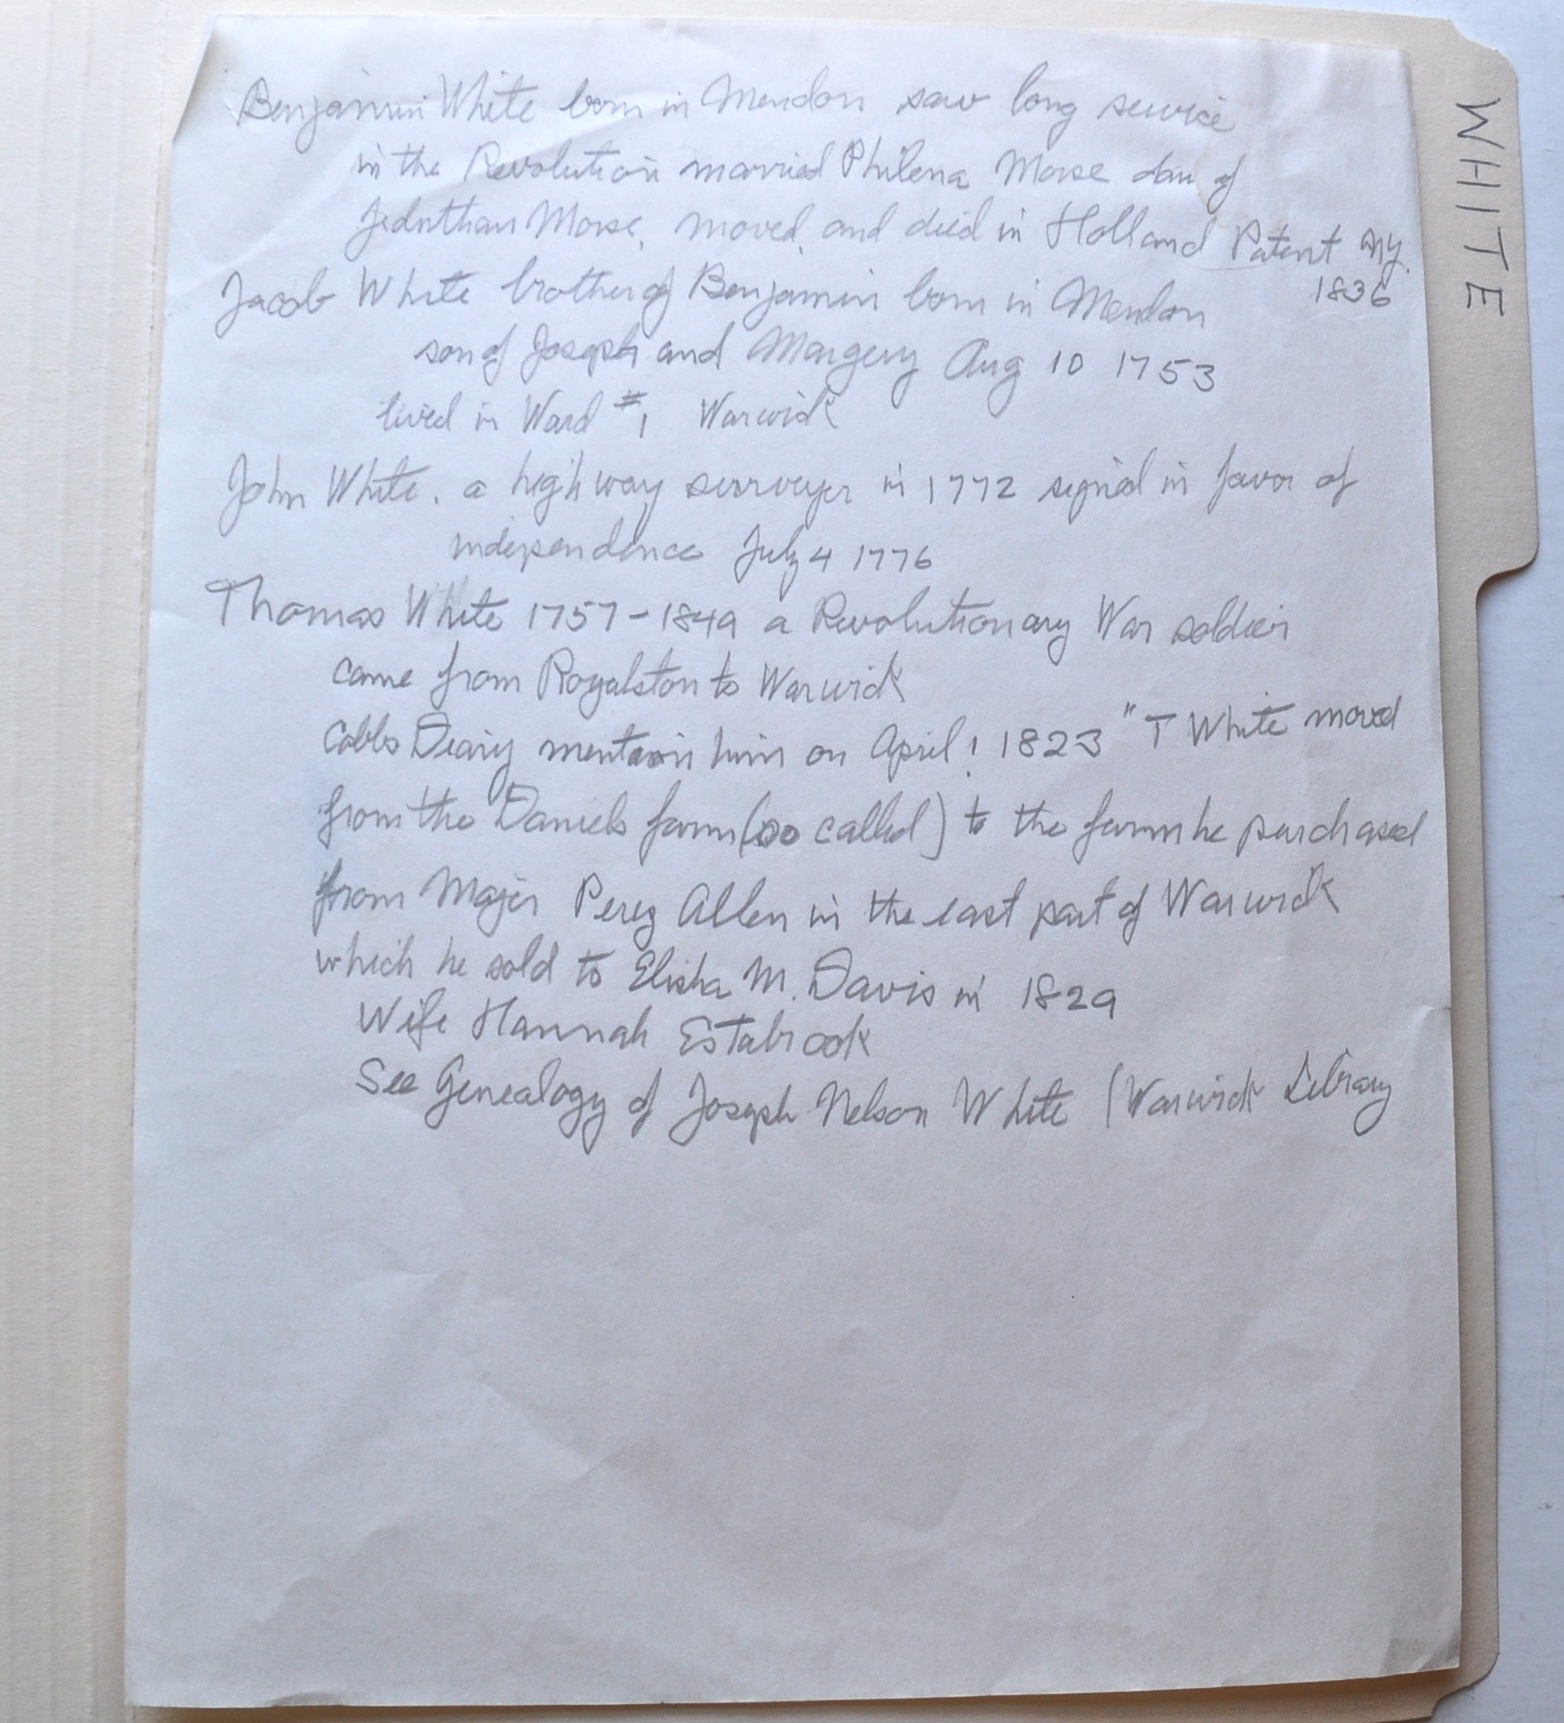 Benjamin White born in Mendon saw long service
in the Revolution married Philena Morse dau of
Jeduthan Morse, moved and died in Holland Patent NY.
1836
Jacob White brother of Benjamin born in Mendon
son of Joseph and Margery Aug 10 1753
lived in Ward #1 Warwick
John White. a highway surveyer in 1772 signed in favor of
independence July 4 1776
Thomas White 1757-1849 a Revolutionary War soldier
came from Royalston to Warwick
Cobbs Diary mention him on April 1 1823 "T White moved
from the Daniels farm (so called) to the farm he purchased
from Major Perez Allen in the east part of Warwick
which he sold to Elisha M. Davis in 1829
Wife Hannah Estabrook
See Genealogy of Joseph Nelson White (Warwick Library
WHITE